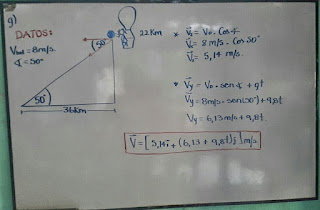 g)
DATOS:
Vtot = 8m/s.
∢ = 50°
50°
22Km
50°
36Km
* V⃗x = Vo · Cos∢
V⃗x = 8 m/s · Cos 50°
V⃗x = 5,14 m/s.
* V⃗y = Vo · sen∢ + gt
V⃗y = 8m/s · sen(50°) + 9,8t
Vy = 6,13m/s + 9,8t.
V⃗ = [5,14i + (6,13 + 9,8t)j] m/s